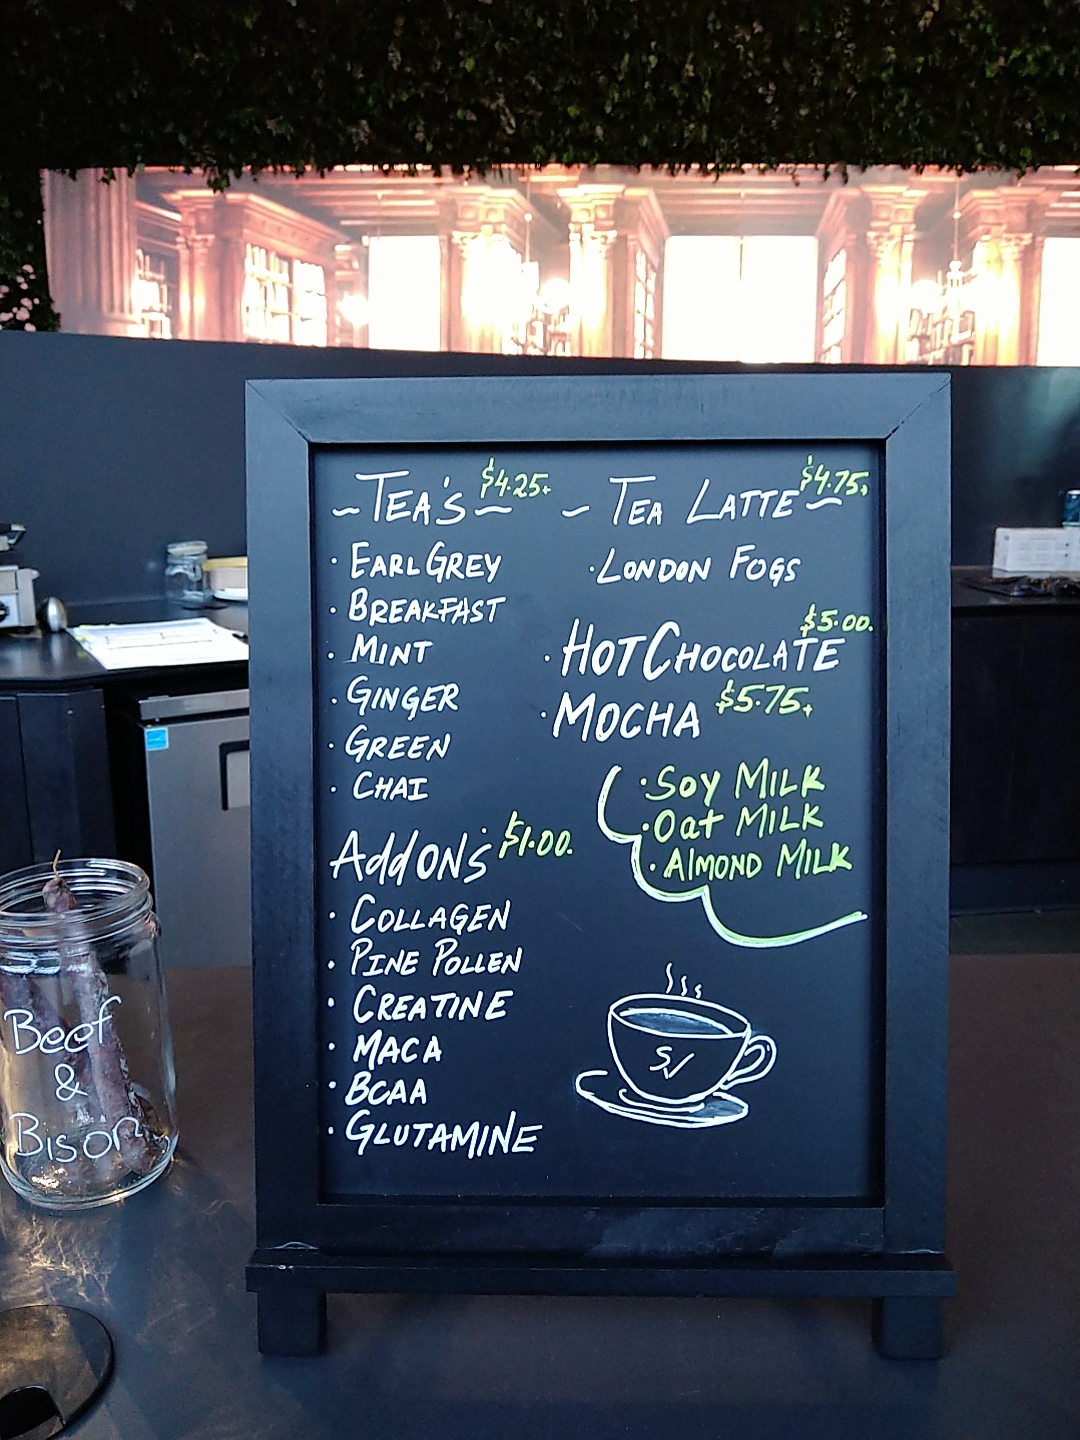 ~TEA'S~ $4.25+
· EARL GREY
· BREAKFAST
· MINT
· GINGER
· GREEN
· CHAI
AddONS $1.00.
· COLLAGEN
· PINE POLLEN
· CREATINE
· MACA
· BCAA
· GLUTAMINE
~ TEA LATTE~ $4.75+
· LONDON FOGS
· HOT CHOCOLATE $5.00.
· MOCHA $5.75+
· SOY MILK
· Oat MILK
· AlMOND MILK
SV
Beef
&
Bison